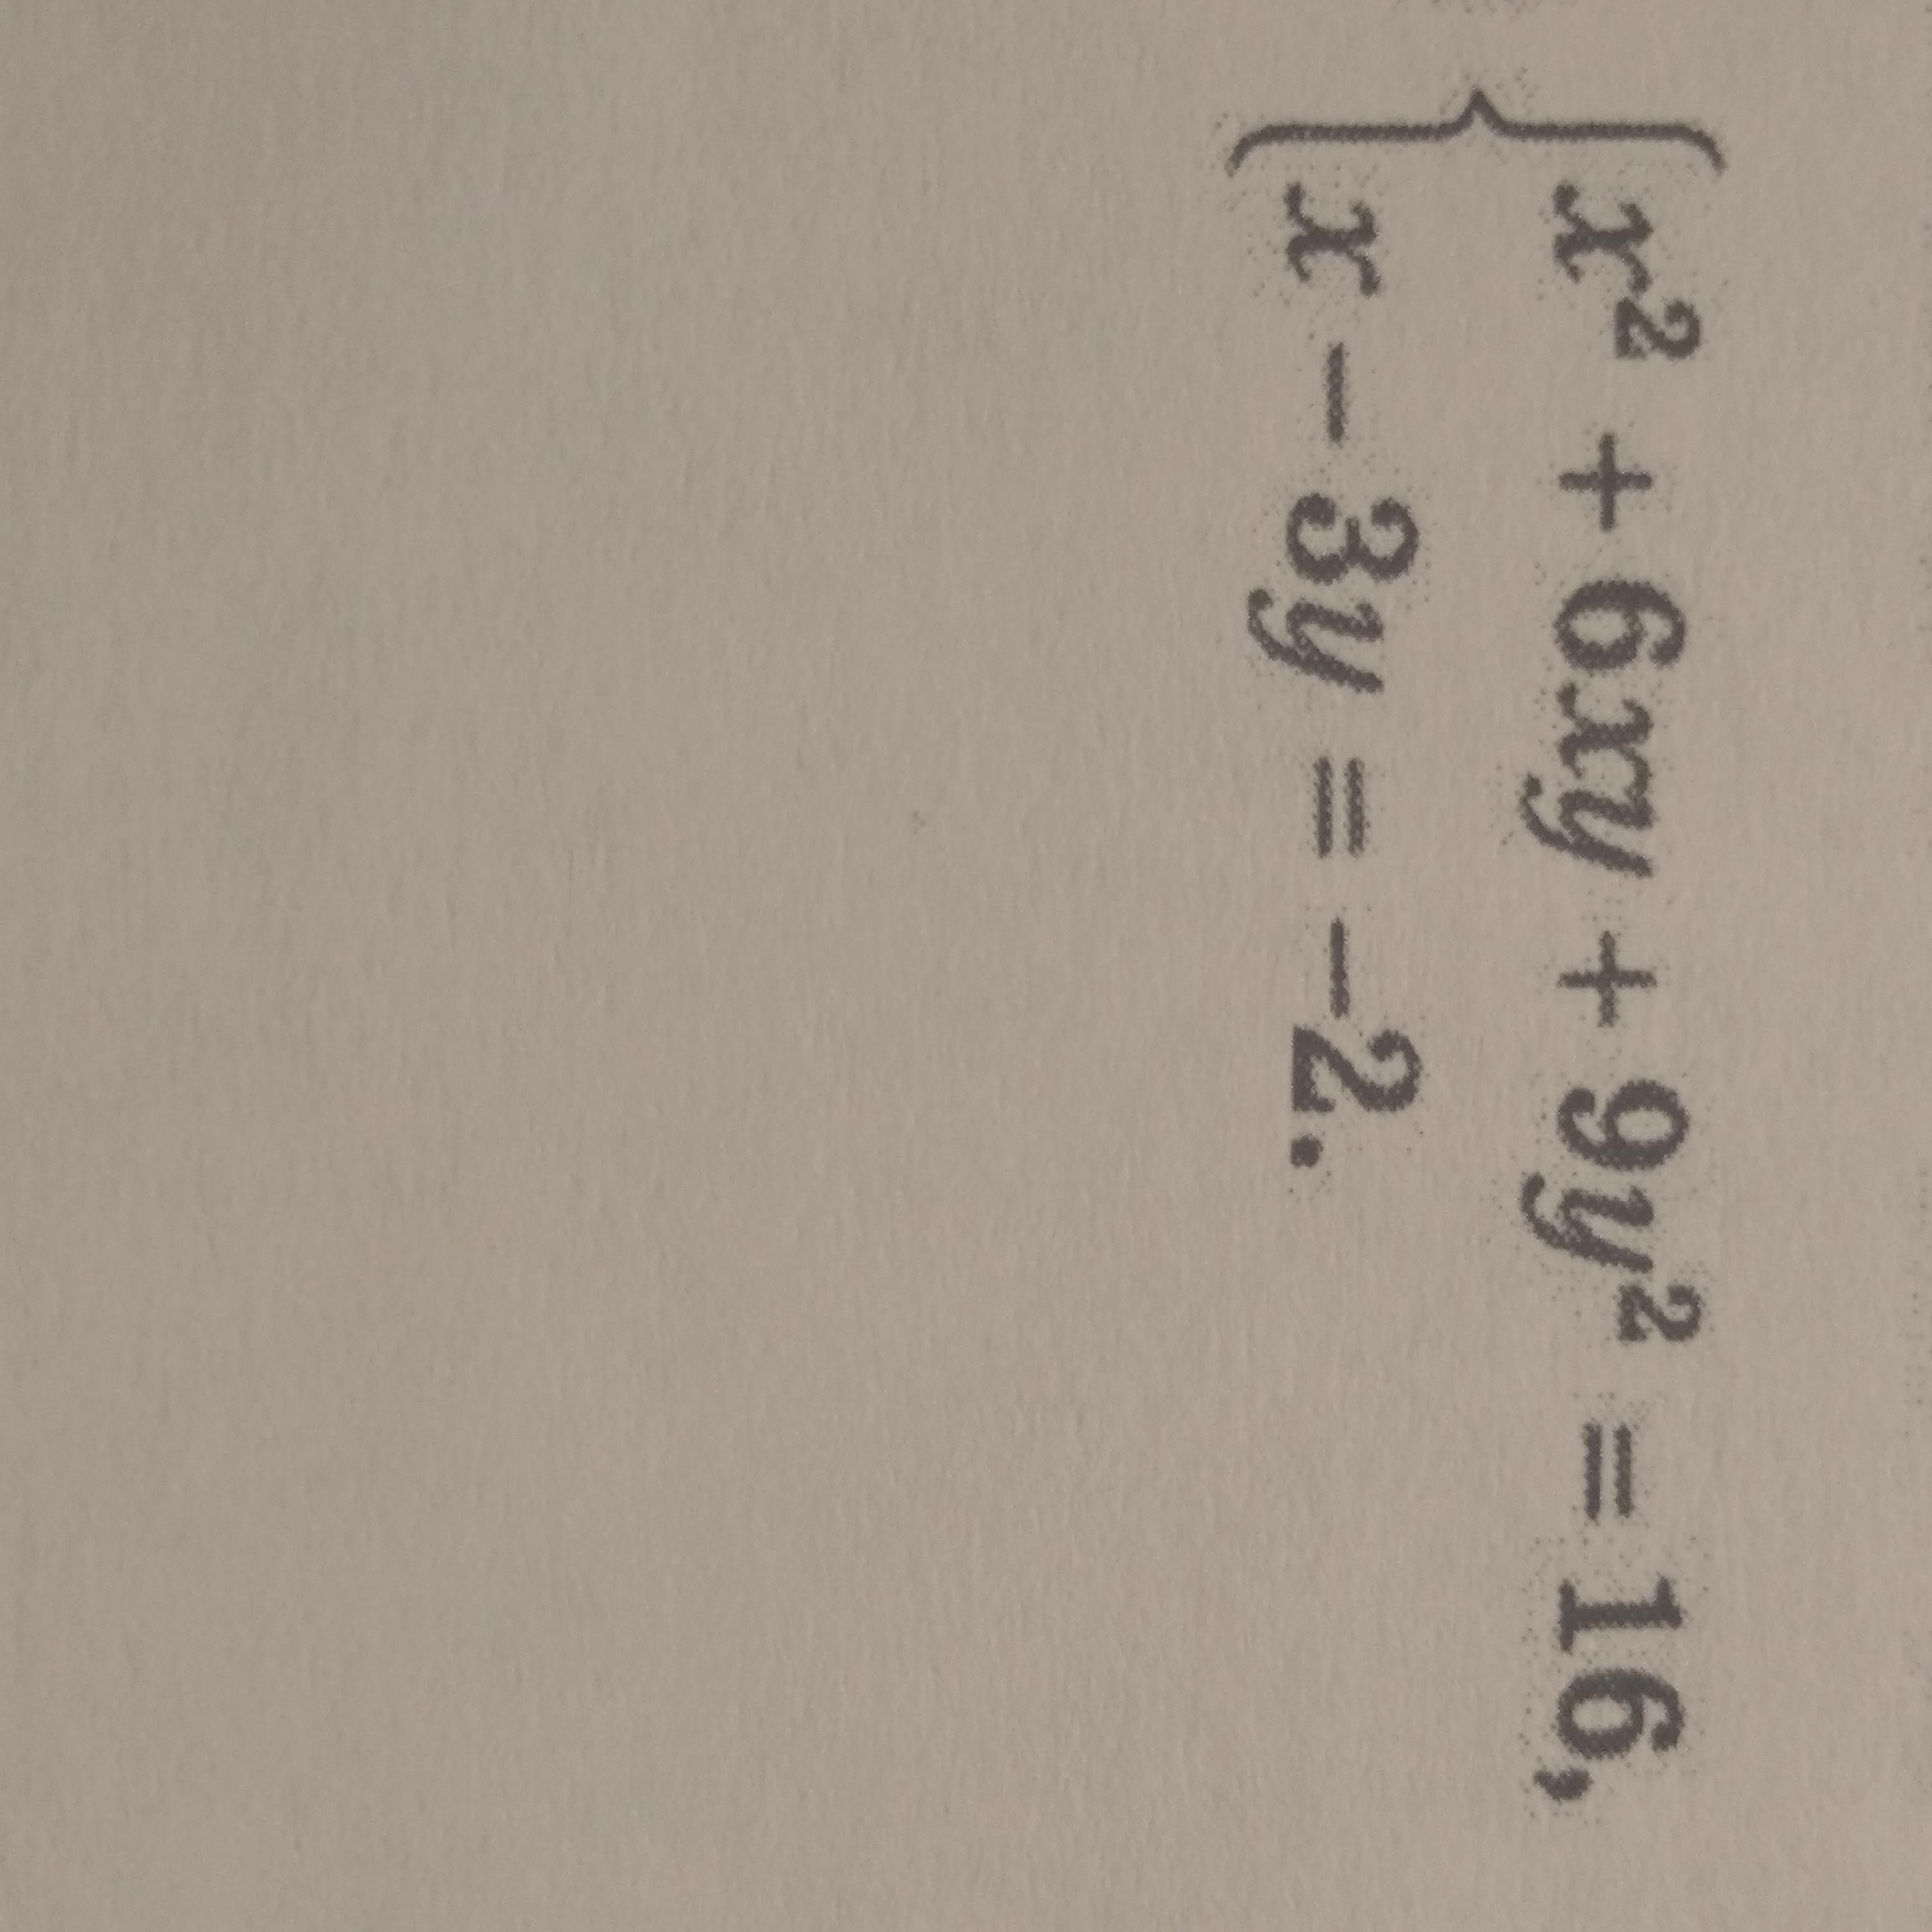 x² + 6xy + 9y² = 16,
x − 3y = −2.